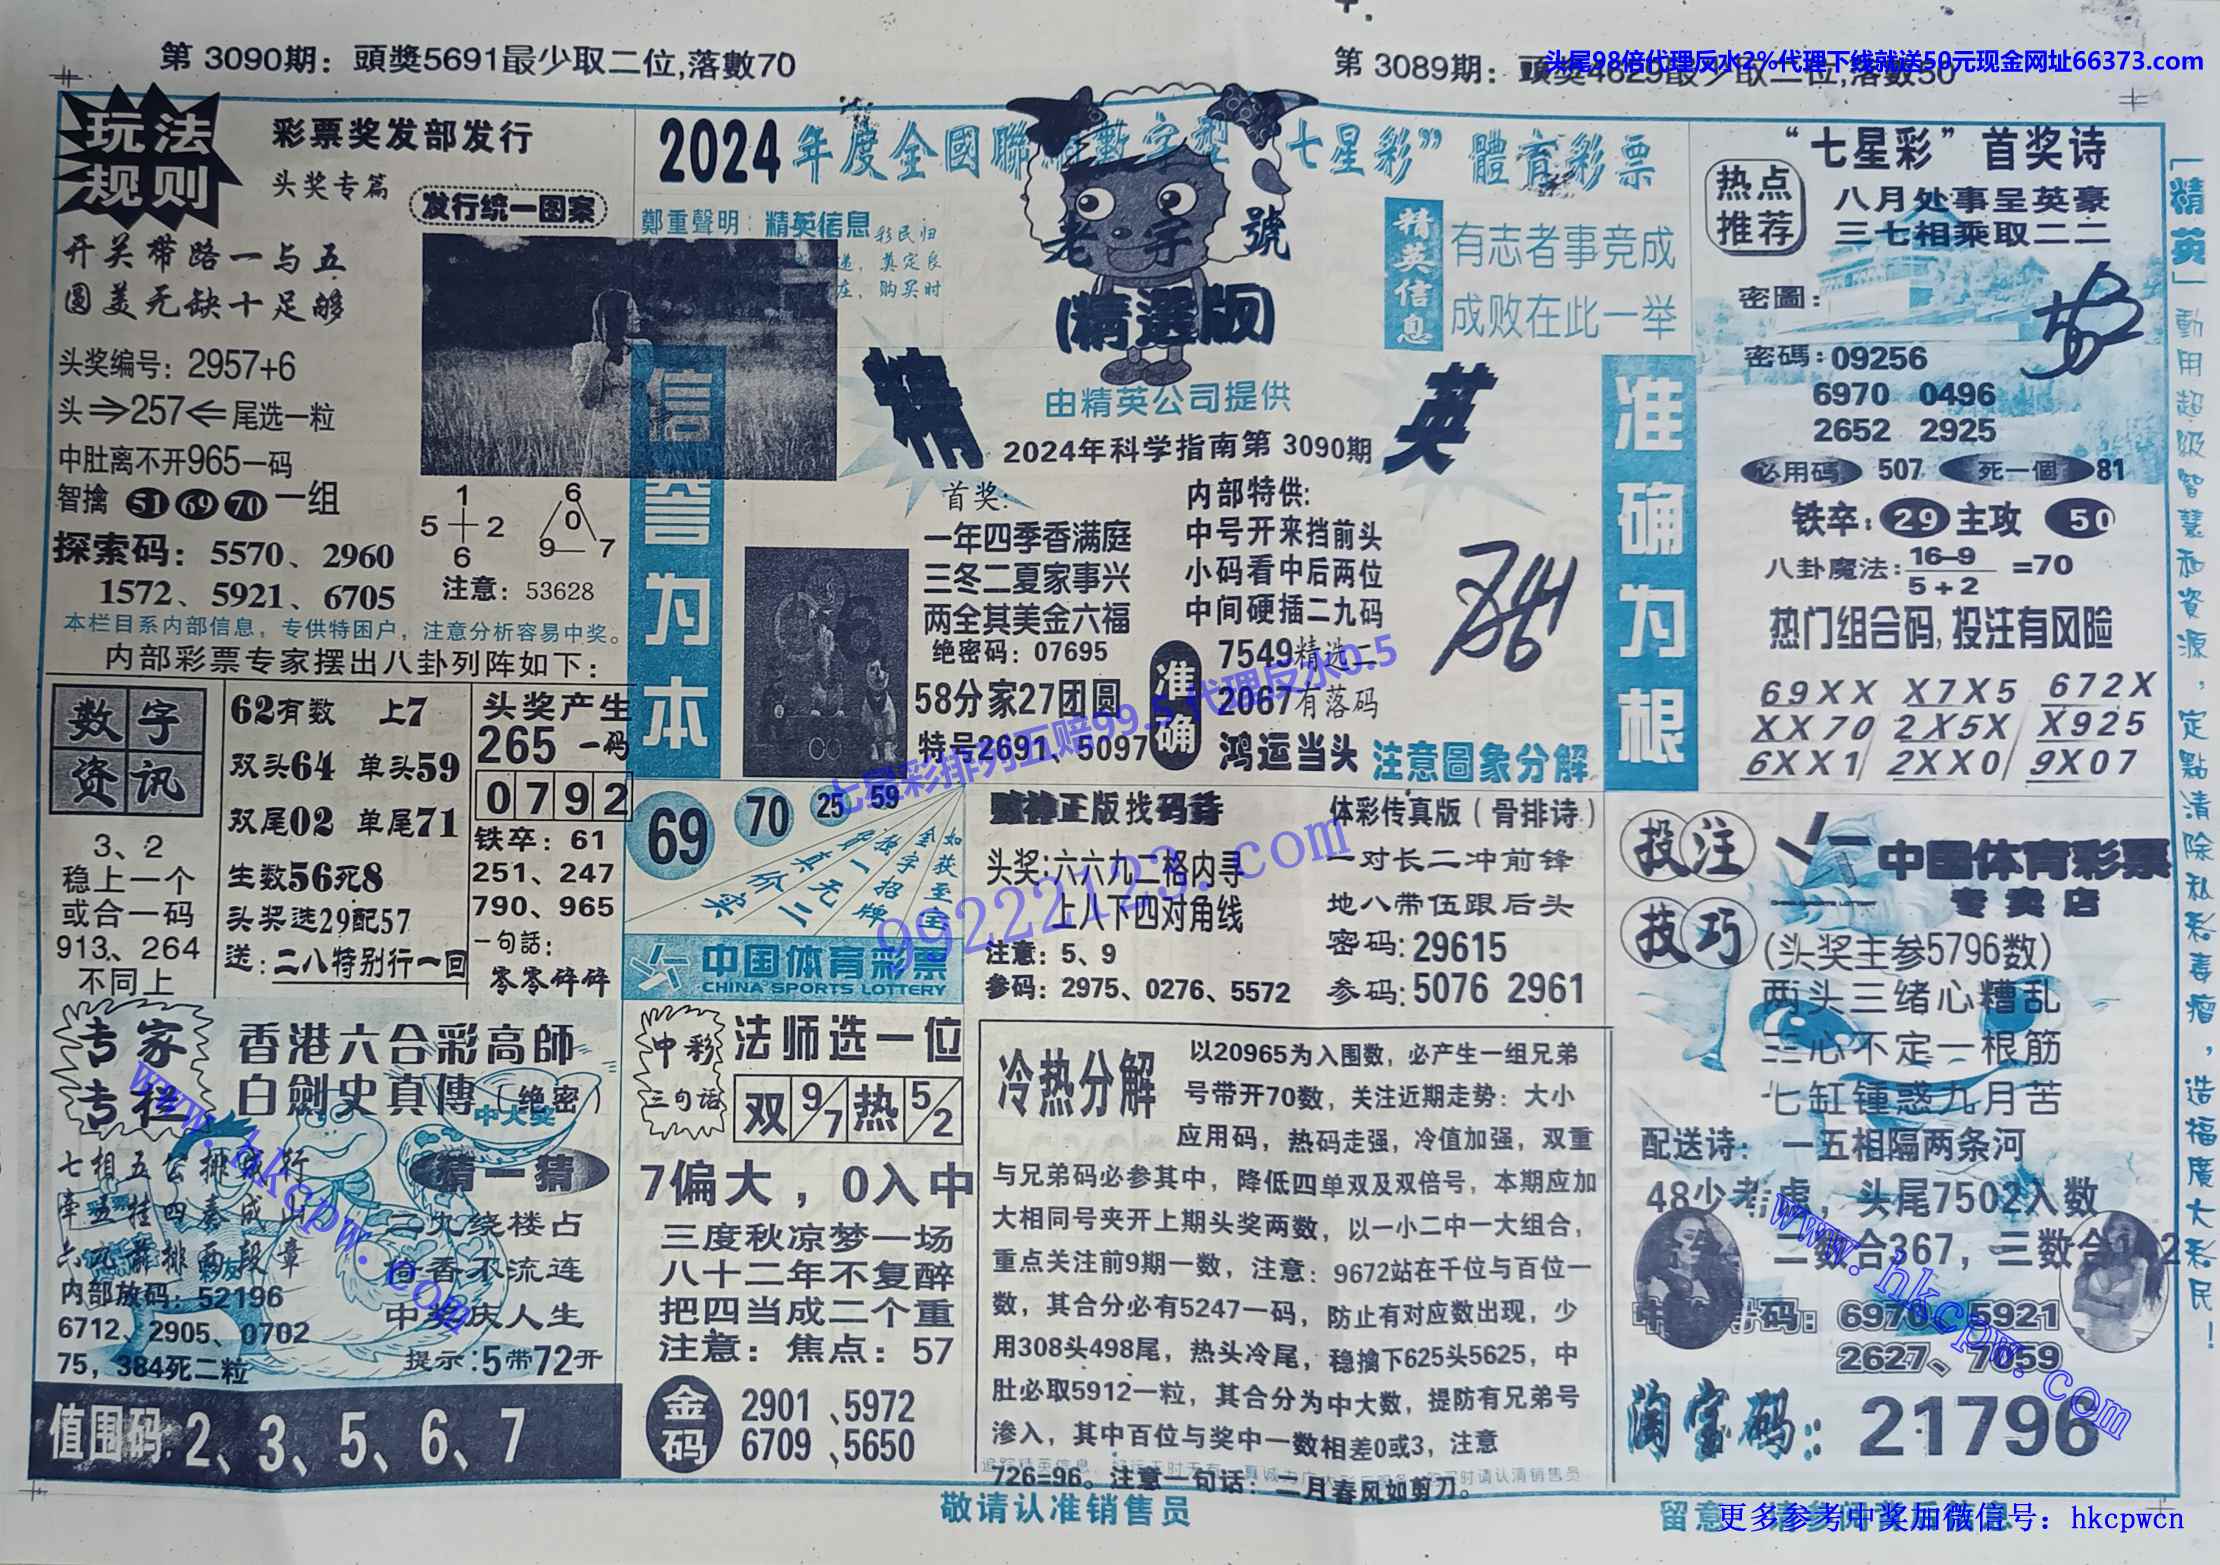 第 3090期：頭獎5691最少取二位,落數70
第 3089期：頭獎4629最少取二位,落數50
头尾98倍代理反水2%代理下线就送50元现金网址66373.com
玩法
规则
彩票奖发部发行
头奖专篇
发行统一图案
开关带路一与五
圆美无缺十足够
头奖编号：2957+6
头⇒257⇐尾选一粒
中肚离不开965一码
智擒 51 69 70 一组
探索码：5570、2960
1572、5921、6705
1
5 2
6
6
0
9 7
注意：53628
本栏目系内部信息，专供特困户，注意分析容易中奖。
内部彩票专家摆出八卦列阵如下：
数字
资讯
3、2
稳上一个
或合一码
913、264
不同上
62有数 上7
双头64 单头59
双尾02 单尾71
生数56死8
头奖选29配57
送：二八特别行一回
头奖产生
265 一码
0 7 9 2
铁卒：61
251、247
790、965
一句話：
零零碎碎
专家
专栏
香港六合彩高師
白劍史真傳（绝密）
中大奖
猜一猜
七相五公排成行
牵五挂四奏成山
内部放码：52196
6712、2905、0702
75，384死二粒
三九绕楼占
荷香不流连
中奖庆人生
提示:5带72开
值围码：2、3、5、6、7
2024年度全國聯網數字型“七星彩”體育彩票
鄭重聲明：精英信息
彩民归
真定良
购买时
老字號
(精選版)
精英
由精英公司提供
2024年科学指南第 3090期
精英信息
有志者事竞成
成败在此一举
信誉为本
准确为根
首奖:
一年四季香满庭
三冬二夏家事兴
两全其美金六福
绝密码：07695
58分家27团圆
特号2691、5097
内部特供:
中号开来挡前头
小码看中后两位
中间硬插二九码
准确
7549精选二
2067有落码
鸿运当头
注意圖象分解
七星彩排列五赔99.5 代理反水0.5
69 70 25 59
如获至宝
金字招牌
独一无二
中国体育彩票
CHINA SPORTS LOTTERY
99222123.com
赌神正版找码诗
头奖:六六九二格内寻
上八下四对角线
注意：5、9
参码：2975、0276、5572
体彩传真版（骨排诗）
一对长二冲前锋
地八带伍跟后头
密码:29615
参码:5076 2961
中彩
三句话
法师选一位
双 9/7 热 5/2
7偏大，0入中
三度秋凉梦一场
八十二年不复醉
把四当成二个重
注意：焦点：57
金码
2901 、5972
6709 、5650
冷热分解
以20965为入围数，必产生一组兄弟
号带开70数，关注近期走势：大小
应用码，热码走强，冷值加强，双重
与兄弟码必参其中，降低四单双及双倍号，本期应加
大相同号夹开上期头奖两数，以一小二中一大组合，
重点关注前9期一数，注意：9672站在千位与百位一
数，其合分必有5247一码，防止有对应数出现，少
用308头498尾，热头冷尾，稳擒下625头5625，中
肚必取5912一粒，其合分为中大数，提防有兄弟号
渗入，其中百位与奖中一数相差0或3，注意
726=96。注意一句话：二月春风如剪刀。
敬请认准销售员
“七星彩”首奖诗
热点
推荐
八月处事呈英豪
三七相乘取二二
密圖：
密碼：09256
6970 0496
2652 2925
必用碼 507 死一個 81
铁卒：29 主攻 50
八卦魔法：16-9/5+2=70
热门组合码,投注有风险
69XX X7X5 672X
XX70 2X5X X925
6XX1 2XX0 9X07
投注
技巧
中国体育彩票
专卖店
(头奖主参5796数)
两头三绪心糟乱
三心不定一根筋
七缸锺惑九月苦
配送诗：一五相隔两条河
48少考虑，头尾7502入数
二数合367，三数合
6970、5921
2627、7059
淘宝码：21796
「精英」動用超级智慧和資源，定點清除私彩毒瘤，造福廣大彩民！
www.hkcpw.com
www.hkcpw.com
更多参考中奖加微信号：hkcpwcn